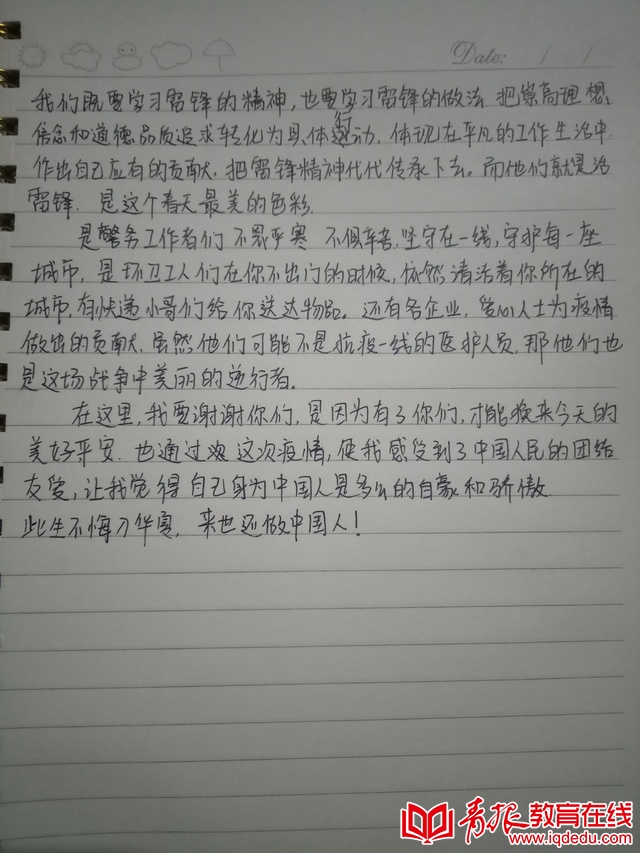 Date: / /
我们既要学习雷锋的精神,也要学习雷锋的做法.把崇高理想、
信念和道德品质追求转化为具体行动,体现在平凡的工作生活中
作出自己应有的贡献,把雷锋精神代代传承下去。而他们就是活
雷锋.是这个春天最美的色彩.
是警务工作者们不畏严寒 不惧辛苦,坚守在一线,守护每一座
城市,是环卫工人们在你不出门的时候,依然清洁着你所在的
城市,有快递小哥们给你送达物品。还有各企业,爱心人士为疫情
做出的贡献.虽然他们可能不是抗疫一线的医护人员,那他们也
是这场战争中美丽的逆行者。
在这里,我要谢谢你们,是因为有了你们,才能换来今天的
美好平安.也通过这次疫情,使我感受到了中国人民的团结
友爱,让我觉得自己身为中国人是多么的自豪和骄傲
此生不悔入华夏,来世还做中国人!
青报教育在线
www.iqdedu.com